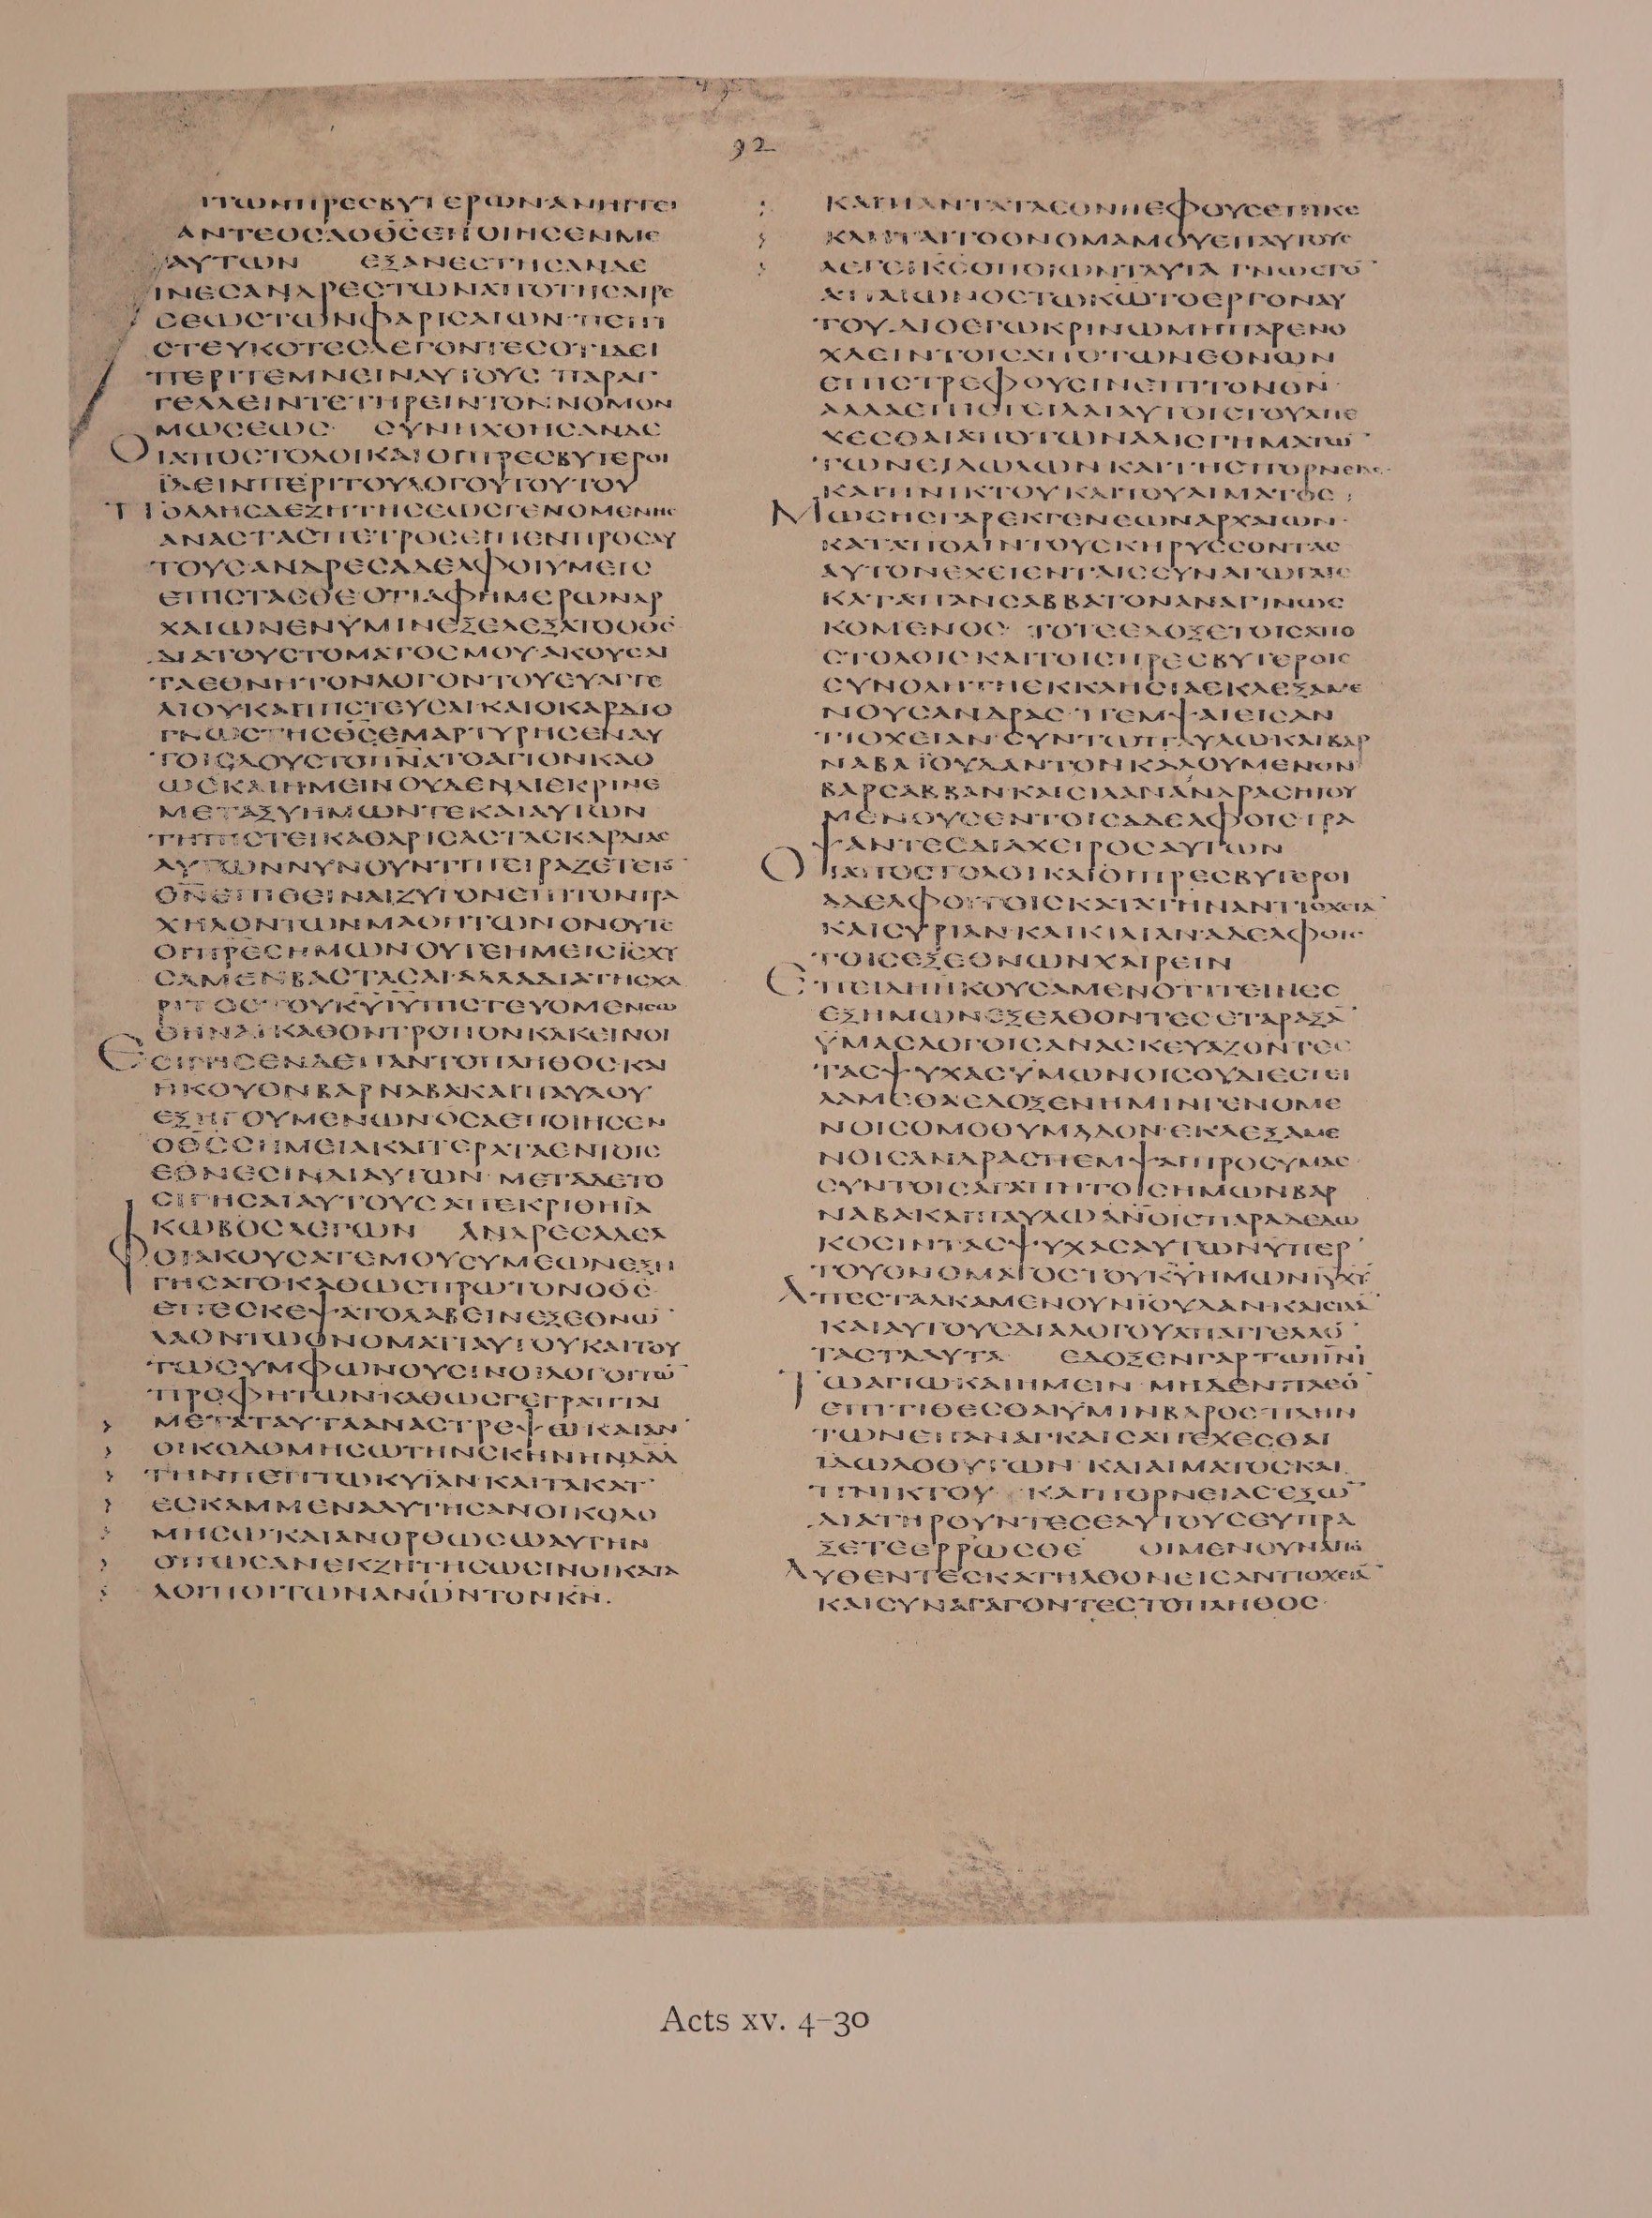 ΙΤΩΝΠΡΕΣΒΥΤΕΡΩΝΑΝΗΓΓΕΙ
ΑΝΤΕΟΣΑΟΘ̅Σ̅ΕΠΟΙΗΣΕΝΜΕ
ΑΥΤΩΝ ΕΞΑΝΕΣΤΗΣΑΝΔΕ
ΤΙΝΕΣΑΝΔΡΕΣΤΩΝΑΠΟΤΗΣΑΙΡΕ
ΣΕΩΣΤΩΝΦΑΡΙΣΑΙΩΝ·ΠΕΠΙ
ΣΤΕΥΚΟΤΕΣΛΕΓΟΝΤΕΣΟΤΙΔΕΙ
ΠΕΡΙΤΕΜΝΕΙΝΑΥΤΟΥΣ·ΠΑΡΑΓ
ΓΕΛΛΕΙΝΤΕΤΗΡΕΙΝΤΟΝΝΟΜΟΝ
ΜΩΣΕΩΣ· ΣΥΝΗΧΘΗΣΑΝΔΕ
ΟΙΑΠΟΣΤΟΛΟΙΚΑΙΟΙΠΡΕΣΒΥΤΕΡΟΙ
ΪΔΕΙΝΠΕΡΙΤΟΥΛΟΓΟΥΤΟΥΤΟΥ
ΠΟΛΛΗΣΔΕΖΗΤΗΣΕΩΣΓΕΝΟΜΕΝΗΣ
ΑΝΑΣΤΑΣΠΕΤΡΟΣΕΙΠΕΝΠΡΟΣΑΥ
ΤΟΥΣΑΝΔΡΕΣΑΔΕΛΦΟΙΥΜΕΙΣ
ΕΠΙΣΤΑΣΘΕΟΤΙΑΦΗΜΕΡΩΝΑΡ
ΧΑΙΩΝΕΝΥΜΙΝΕΞΕΛΕΞΑΤΟΟΘ̅Σ̅
ΔΙΑΤΟΥΣΤΟΜΑΤΟΣΜΟΥ·ΑΚΟΥΣΑΙ
ΤΑΕΘΝΗΤΟΝΛΟΓΟΝΤΟΥΕΥΑΓΓΕ
ΛΙΟΥΚΑΙΠΙΣΤΕΥΣΑΙΚΑΙΟΚΑΡΔΙΟ
ΓΝΩΣΤΗΣΘ̅Σ̅ΕΜΑΡΤΥΡΗΣΕΝΑΥ
ΤΟΙΣΔΟΥΣΤΟΠ̅Ν̅Α̅ΤΟΑΓΙΟΝΚΑΘ
ΩΣΚΑΙΗΜΕΙΝΟΥΔΕΝΔΙΕΚΡΙΝΕ
ΜΕΤΑΞΥΗΜΩΝΤΕΚΑΙΑΥΤΩΝ
ΤΗΠΙΣΤΕΙΚΑΘΑΡΙΣΑΣΤΑΣΚΑΡΔΙΑΣ
ΑΥΤΩΝΝΥΝΟΥΝΤΙΠΕΙΡΑΖΕΤΕΤΟ̅
Θ̅Ν̅ΕΠΙΘΕΙΝΑΙΖΥΓΟΝΕΠΙΤΟΝΤΡΑ
ΧΗΛΟΝΤΩΝΜΑΘΗΤΩΝΟΝΟΥΤΕ
ΟΙΠΡΕΣΗΜΩΝΟΥΤΕΗΜΕΙΣΪΣΧΥ
ΣΑΜΕΝΒΑΣΤΑΣΑΙ·ΑΛΛΑΔΙΑΤΗΣΧΑ
ΡΙΤΟΣΤΟΥΚ̅Υ̅Ι̅Υ̅ΠΙΣΤΕΥΟΜΕΝΣΩ
ΘΗΝΑΙΚΑΘΟΝΤΡΟΠΟΝΚΑΚΕΙΝΟΙ
ΕΣΙΓΗΣΕΝΔΕΠΑΝΤΟΠΛΗΘΟΣΚΑΙ
ΗΚΟΥΟΝΒΑΡΝΑΒΑΚΑΙΠΑΥΛΟΥ
ΕΞΗΓΟΥΜΕΝΩΝΟΣΑΕΠΟΙΗΣΕΝ
ΟΘ̅Σ̅ΣΗΜΕΙΑΚΑΙΤΕΡΑΤΑΕΝΤΟΙΣ
ΕΘΝΕΣΙΝΔΙΑΥΤΩΝ·ΜΕΤΑΔΕΤΟ
ΣΙΓΗΣΑΙΑΥΤΟΥΣΑΠΕΚΡΙΘΗΪΑ
ΚΩΒΟΣΛΕΓΩΝ ΑΝΔΡΕΣΑΔΕΛ
ΦΟΙΑΚΟΥΣΑΤΕΜΟΥΣΥΜΕΩΝΕΞΗ
ΓΗΣΑΤΟΚΑΘΩΣΠΡΩΤΟΝΟΘ̅Σ̅
ΕΠΕΣΚΕΨΑΤΟΛΑΒΕΙΝΕΞΕΘΝΩ̅
ΛΑΟΝΤΩΟΝΟΜΑΤΙΑΥΤΟΥΚΑΙΤΟΥ
ΤΩΣΥΜΦΩΝΟΥΣΙΝΟΙΛΟΓΟΙΤΩ̅
ΠΡΟΦΗΤΩΝΚΑΘΩΣΓΕΓΡΑΠΤΑΙ
> ΜΕΤΑΤΑΥΤΑΑΝΑΣΤΡΕΨΩΚΑΙΑΝ
> ΟΙΚΟΔΟΜΗΣΩΤΗΝΣΚΗΝΗΝΔΑΔ
> ΤΗΝΠΕΠΤΩΚΥΪΑΝΚΑΙΤΑΚΑΤ
> ΕΣΚΑΜΜΕΝΑΑΥΤΗΣΑΝΟΙΚΟΔΟ
> ΜΗΣΩΚΑΙΑΝΟΡΘΩΣΩΑΥΤΗΝ
> ΟΠΩΣΑΝΕΚΖΗΤΗΣΩΣΙΝΟΙΚΑΤΑ
> ΛΟΙΠΟΙΤΩΝΑΝ̅Ω̅Ν̅ΤΟΝΚ̅Ν̅.
92
> ΚΑΙΠΑΝΤΑΤΑΕΘΝΗΕΦΟΥΣΕΠΙΚΕ
> ΚΛΗΤΑΙΤΟΟΝΟΜΑΜΟΥΕΠΑΥΤΟΥΣ
> ΛΕΓΕΙΚ̅Σ̅ΟΠΟΙΩΝΤΑΥΤΑ ΓΝΩΣΤΟ̅
ΑΠΑΙΩΝΟΣΤΩΚ̅Ω̅ΤΟΕΡΓΟΝΑΥ
ΤΟΥ·ΔΙΟΕΓΩΚΡΙΝΩΜΗΠΑΡΕΝΟ
ΧΛΕΙΝΤΟΙΣΑΠΟΤΩΝΕΘΝΩΝ
ΕΠΙΣΤΡΕΦΟΥΣΙΝΕΠΙΤΟΝΘ̅Ν̅·
ΑΛΛΑΕΠΙΣΤΕΙΛΑΙΑΥΤΟΙΣΤΟΥΑΠΕ
ΧΕΣΘΑΙΑΠΟΤΩΝΑΛΙΣΓΗΜΑΤΩ̅
ΤΩΝΕΙΔΩΛΩΝΚΑΙΤΗΣΠΟΡΝΕΙΑΣ
ΚΑΙΠΝΙΚΤΟΥΚΑΙΤΟΥΑΙΜΑΤΟΣ
ΜΩΣΗΣΓΑΡΕΚΓΕΝΕΩΝΑΡΧΑΙΩΝ·
ΚΑΤΑΠΟΛΙΝΤΟΥΣΚΗΡΥΣΣΟΝΤΑΣ
ΑΥΤΟΝΕΧΕΙΕΝΤΑΙΣΣΥΝΑΓΩΓΑΙΣ
ΚΑΤΑΠΑΝΣΑΒΒΑΤΟΝΑΝΑΓΙΝΩΣ
ΚΟΜΕΝΟΣ· ΤΟΤΕΕΔΟΞΕΤΟΙΣΑΠΟ
ΣΤΟΛΟΙΣΚΑΙΤΟΙΣΠΡΕΣΒΥΤΕΡΟΙΣ
ΣΥΝΟΛΗΤΗΕΚΚΛΗΣΙΑΕΚΛΕΞΑΜΕ
ΝΟΥΣΑΝΔΡΑΣ·ΠΕΜΨΑΙΕΙΣΑΝ
ΤΙΟΧΕΙΑΝΣΥΝΤΩΠΑΥΛΩΚΑΙΒΑΡ
ΝΑΒΑΪΟΥΔΑΝΤΟΝΚΑΛΟΥΜΕΝΟΝ
ΒΑΡΣΑΒΒΑΝΚΑΙΣΙΛΑΝΑΝΔΡΑΣΗΓΟΥ
ΜΕΝΟΥΣΕΝΤΟΙΣΑΔΕΛΦΟΙΣ·ΓΡΑ
ΨΑΝΤΕΣΔΙΑΧΕΙΡΟΣΑΥΤΩΝ
ΟΙΑΠΟΣΤΟΛΟΙΚΑΙΟΙΠΡΕΣΒΥΤΕΡΟΙ
ΑΔΕΛΦΟΙΤΟΙΣΚΑΤΑΤΗΝΑΝΤΙΟΧΕΙΑ̅
ΚΑΙΣΥΡΙΑΝΚΑΙΚΙΛΙΑΝ·ΑΔΕΛΦΟΙΣ
ΤΟΙΣΕΞΕΘΝΩΝΧΑΙΡΕΙΝ
ΕΠΕΙΔΗΗΚΟΥΣΑΜΕΝΟΤΙΤΕΙΝΕΣ
ΕΞΗΜΩΝΕΞΕΛΘΟΝΤΕΣΕΤΑΡΑΞΑ̅
ΥΜΑΣΛΟΓΟΙΣΑΝΑΣΚΕΥΑΖΟΝΤΕΣ
ΤΑΣΨΥΧΑΣΥΜΩΝΟΙΣΟΥΔΙΕΣΤΕΙ
ΛΑΜΕΘΑΕΔΟΞΕΝΗΜΙΝΓΕΝΟΜΕ
ΝΟΙΣΟΜΟΘΥΜΑΔΟΝ·ΕΚΛΕΞΑΜΕ
ΝΟΙΣΑΝΔΡΑΣΠΕΜΨΑΙΠΡΟΣΥΜΑΣ
ΣΥΝΤΟΙΣΑΓΑΠΗΤΟΙΣΗΜΩΝΒΑΡ
ΝΑΒΑΚΑΙΠΑΥΛΩΑΝ̅Ο̅Ι̅Σ̅ΠΑΡΑΔΕΔΩ
ΚΟΣΙΝΤΑΣΨΥΧΑΣΑΥΤΩΝΥΠΕΡ
ΤΟΥΟΝΟΜΑΤΟΣΤΟΥΚ̅Υ̅ΗΜΩΝΙ̅Υ̅Χ̅Υ̅
ΑΠΕΣΤΑΛΚΑΜΕΝΟΥΝΪΟΥΔΑΝΚΑΙΣΙΛΑ̅
ΚΑΙΑΥΤΟΥΣΔΙΑΛΟΓΟΥΑΠΑΓΓΕΛΛΟ̅
ΤΑΣΤΑΑΥΤΑ ΕΔΟΞΕΝΓΑΡΤΩΠ̅Ν̅Ι̅
ΤΩΑΓΙΩΚΑΙΗΜΕΙΝ·ΜΗΔΕΝΠΛΕΟ̅
ΕΠΙΤΙΘΕΣΘΑΙΥΜΙΝΒΑΡΟΣ·ΠΛΗΝ
ΤΩΝΕΠΑΝΑΓΚΑΙΣΑΠΕΧΕΣΘΑΙ
ΙΔΩΛΟΘΥΤΩΝ·ΚΑΙΑΙΜΑΤΟΣΚΑΙ
ΠΝΙΚΤΟΥ·ΚΑΙΠΟΡΝΕΙΑΣΕΞΩ̅
ΔΙΑΤΗΡΟΥΝΤΕΣΕΑΥΤΟΥΣΕΥΠΡΑ
ΞΕΤΕΕΡΡΩΣΘΕ ΟΙΜΕΝΟΥΝΑΠΟ
ΛΥΘΕΝΤΕΣΚΑΤΗΛΘΟΝΕΙΣΑΝΤΙΟΧΕΙΑ̅
ΚΑΙΣΥΝΑΓΑΓΟΝΤΕΣΤΟΠΛΗΘΟΣ·
Acts xv. 4–30